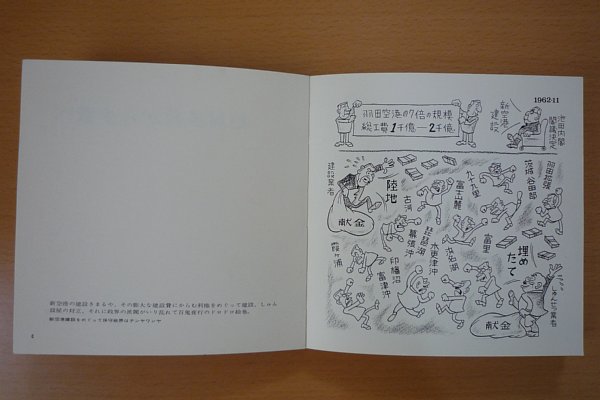 新空港の建設きまるや、その膨大な建設費にからむ利権をめぐって建設、しゅん
設屋の対立、それに政界の派閥がいり乱れて百鬼夜行のドロドロ絵巻。
新空港建設をめぐって保守政界はテンヤワンヤ
6
1962·11
羽田空港の7倍の規模
総工費1千億—2千億
新空港建設
池田内閣
閣議決定
建設業者
陸地
献金
古河
富士山麓
九十九里
茨城谷田部
羽田拡張
霞ヶ浦
幕張沖
琵琶湖
木更津沖
浜名湖
富里
埋めたて
印旛沼
富津沖
しゅんせつ業者
献金